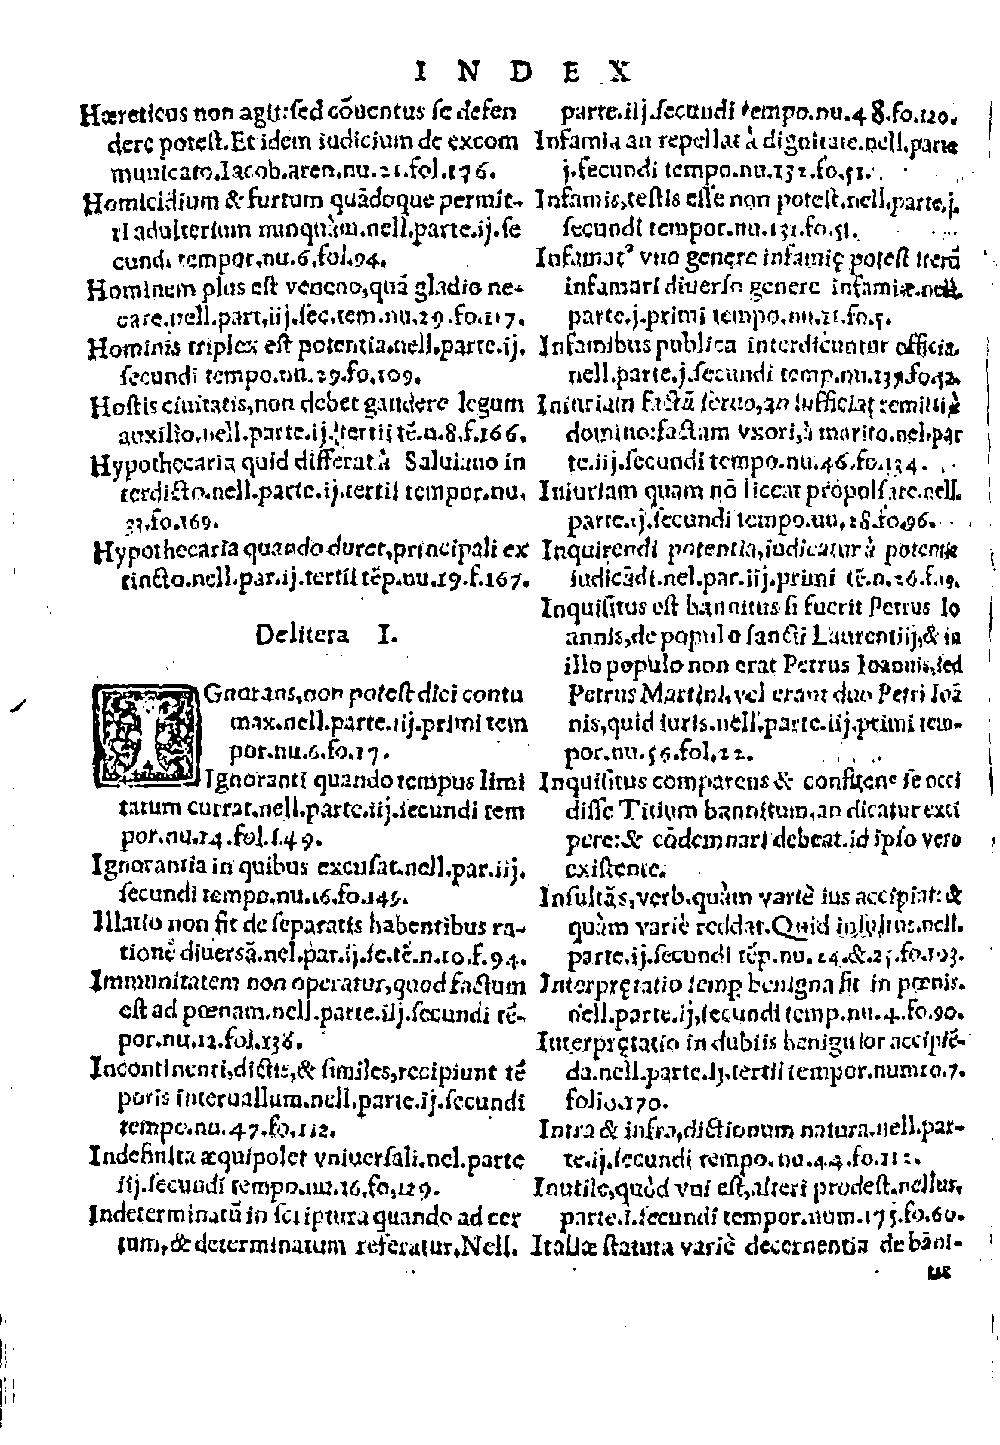 INDEX
Hæreticus non agit:sed cõuentus se defen
dere potest.Et idem iudicium de excom
municato.Iacob.aren.nu.21.fol.176.
Homicidium & furtum quãdoque permit-
ti adulterium nunquàm.nell.parte.ij.se
cundi tempor.nu.6.fol.94.
Hominem plus est veneno,quã gladio ne-
care.nell.part,iij.sec.tem.nu.29.fo.117.
Hominis triplex est potentia.nell.parte.ij.
secundi tempo.nu.29.fo.109.
Hostis ciuitatis,non debet gaudere legum
auxilio.nell.parte.ij.tertij tẽ.n.8.f.166.
Hypothecaria quid differat à Saluiano in
terdicto.nell.parte.ij.tertii tempor.nu.
33.fo.169.
Hypothecaria quando duret,principali ex
tincto.nell.par.ij.tertii tẽp.nu.19.f.167.
De litera I.
IGnorans,non potest dici contu
max.nell.parte.iij.primi tem
por.nu.6.fo.17.
Ignoranti quando tempus limi
tatum currat.nell.parte.iij.secundi tem
por.nu.14.fol.149.
Ignorantia in quibus excusat.nell.par.iij.
secundi tempo.nu.16.fo.145.
Illatio non fit de separatis habentibus ra-
tionẽ diuersã.nel.par.ij.se.tẽ.n.10.f.94.
Immunitatem non operatur,quod factum
est ad pœnam.nell.parte.iij.secundi tẽ-
por.nu.12.fol.138.
Incontinenti,dictis,& similes,recipiunt tẽ
poris interuallum.nell.parte.ij.secundi
tempo.nu.47.fo.112.
Indefinita æquipolet vniuersali.nel.parte
iij.secundi tempo.nu.16.fo,129.
Indeterminatũ in scriptura quando ad cer
tum,& determinatum referatur.Nell.
parte.iij.secundi tempo.nu.48.fo.120.
Infamia an repellat à dignitate.nell.parte
j.secundi tempo.nu.132.fo.51.
Infamis,testis esse non potest.nell.parte.j.
secundi tempor.nu.131.fo.51.
Infamat⁹ vno genere infamię potest iterũ
infamari diuerso genere infamiæ.nell.
parte.j.primi tempo.nu.21.fo.5.
Infamibus publica interdicuntur officia.
nell.parte.j.secundi temp.nu.135.fo.52.
Iniuriam factã seruo,an sufficiat remitti à
domino:factam vxori,à marito.nel.par
te.iij.secundi tempo.nu.46.fo.134.
Iniuriam quam nõ liceat propulsare.nell.
parte.ij.secundi tempo.nu.28.fo.96.
Inquirendi potentia,iudicatur à potentia
iudicãdi.nel.par.iij.primi tẽ.n.26.f.19.
Inquisitus est bannitus si fuerit Petrus Io
annis,de populo sancti Laurentij,& in
illo populo non erat Petrus Ioannis,sed
Petrus Martini,vel erant duo Petri Ioã
nis,quid iuris.nell.parte.iij.primi tem-
por.nu.56.fol,22.
Inquisitus comparens & confitens se occi
disse Titium bannitum,an dicatur exci
pere:& cõdemnari debeat.id ipso vero
existente.
Insultãs,verb.quàm variè ius accipiat:&
quàm variè reddat.Quid insultus.nell.
parte.ij.secundi tẽp.nu.24.&.25.fo.103.
Interprętatio semp benigna fit in pœnis.
nell.parte.ij,secundi temp.nu.4.fo.90.
Interprętatio in dubiis benignior accipiẽ-
da.nell.parte.ij.tertii tempor.numro.7.
folio.170.
Intra & infra,dictionum natura.nell.par-
te.ij.secundi tempo.nu.44.fo.112.
Inutile,quòd vni est,alteri prodest.nellur.
parte.I.secundi tempor.num.175.fo.60.
Italiæ statuta variè decernentia de bãni-